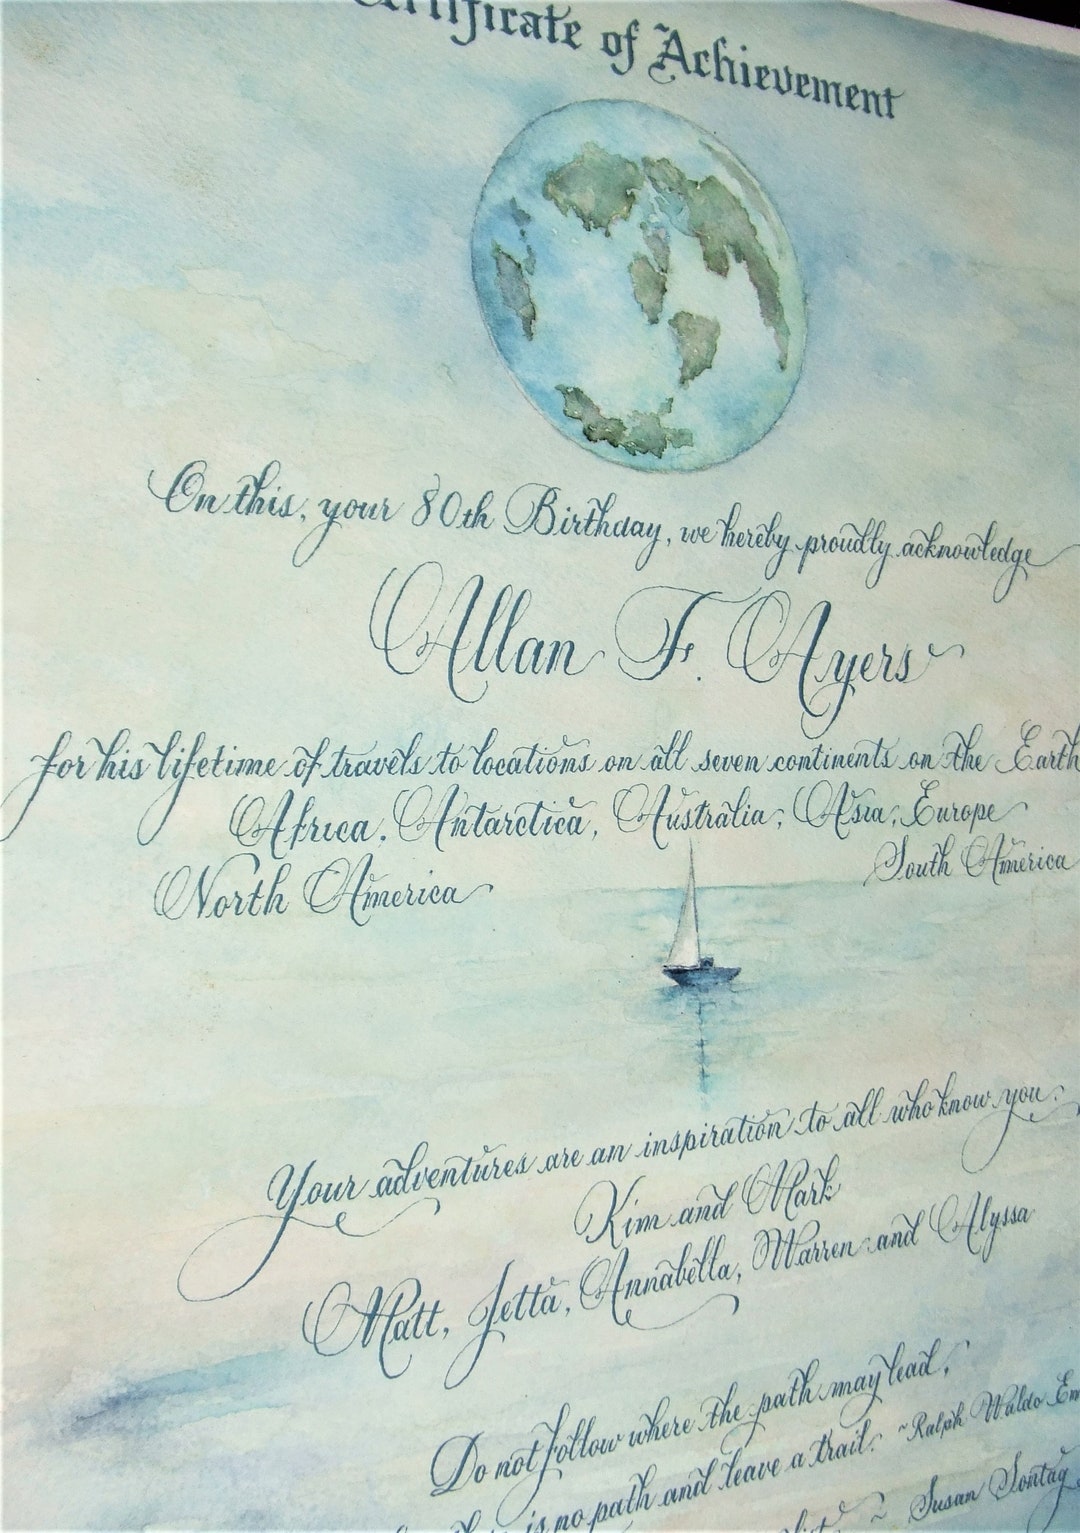 Certificate of Achievement
On this, your 80th Birthday, we hereby proudly acknowledge
Allan F. Ayers
for his lifetime of travels to locations on all seven continents on the Earth
Africa, Antarctica, Australia, Asia, Europe
North America South America
Your adventures are an inspiration to all who know you.
Kim and Mark
Matt, Jetta, Annabella, Warren and Alyssa
Do not follow where the path may lead,
is no path and leave a trail. ~Ralph Waldo Em
list ~ Susan Sontag